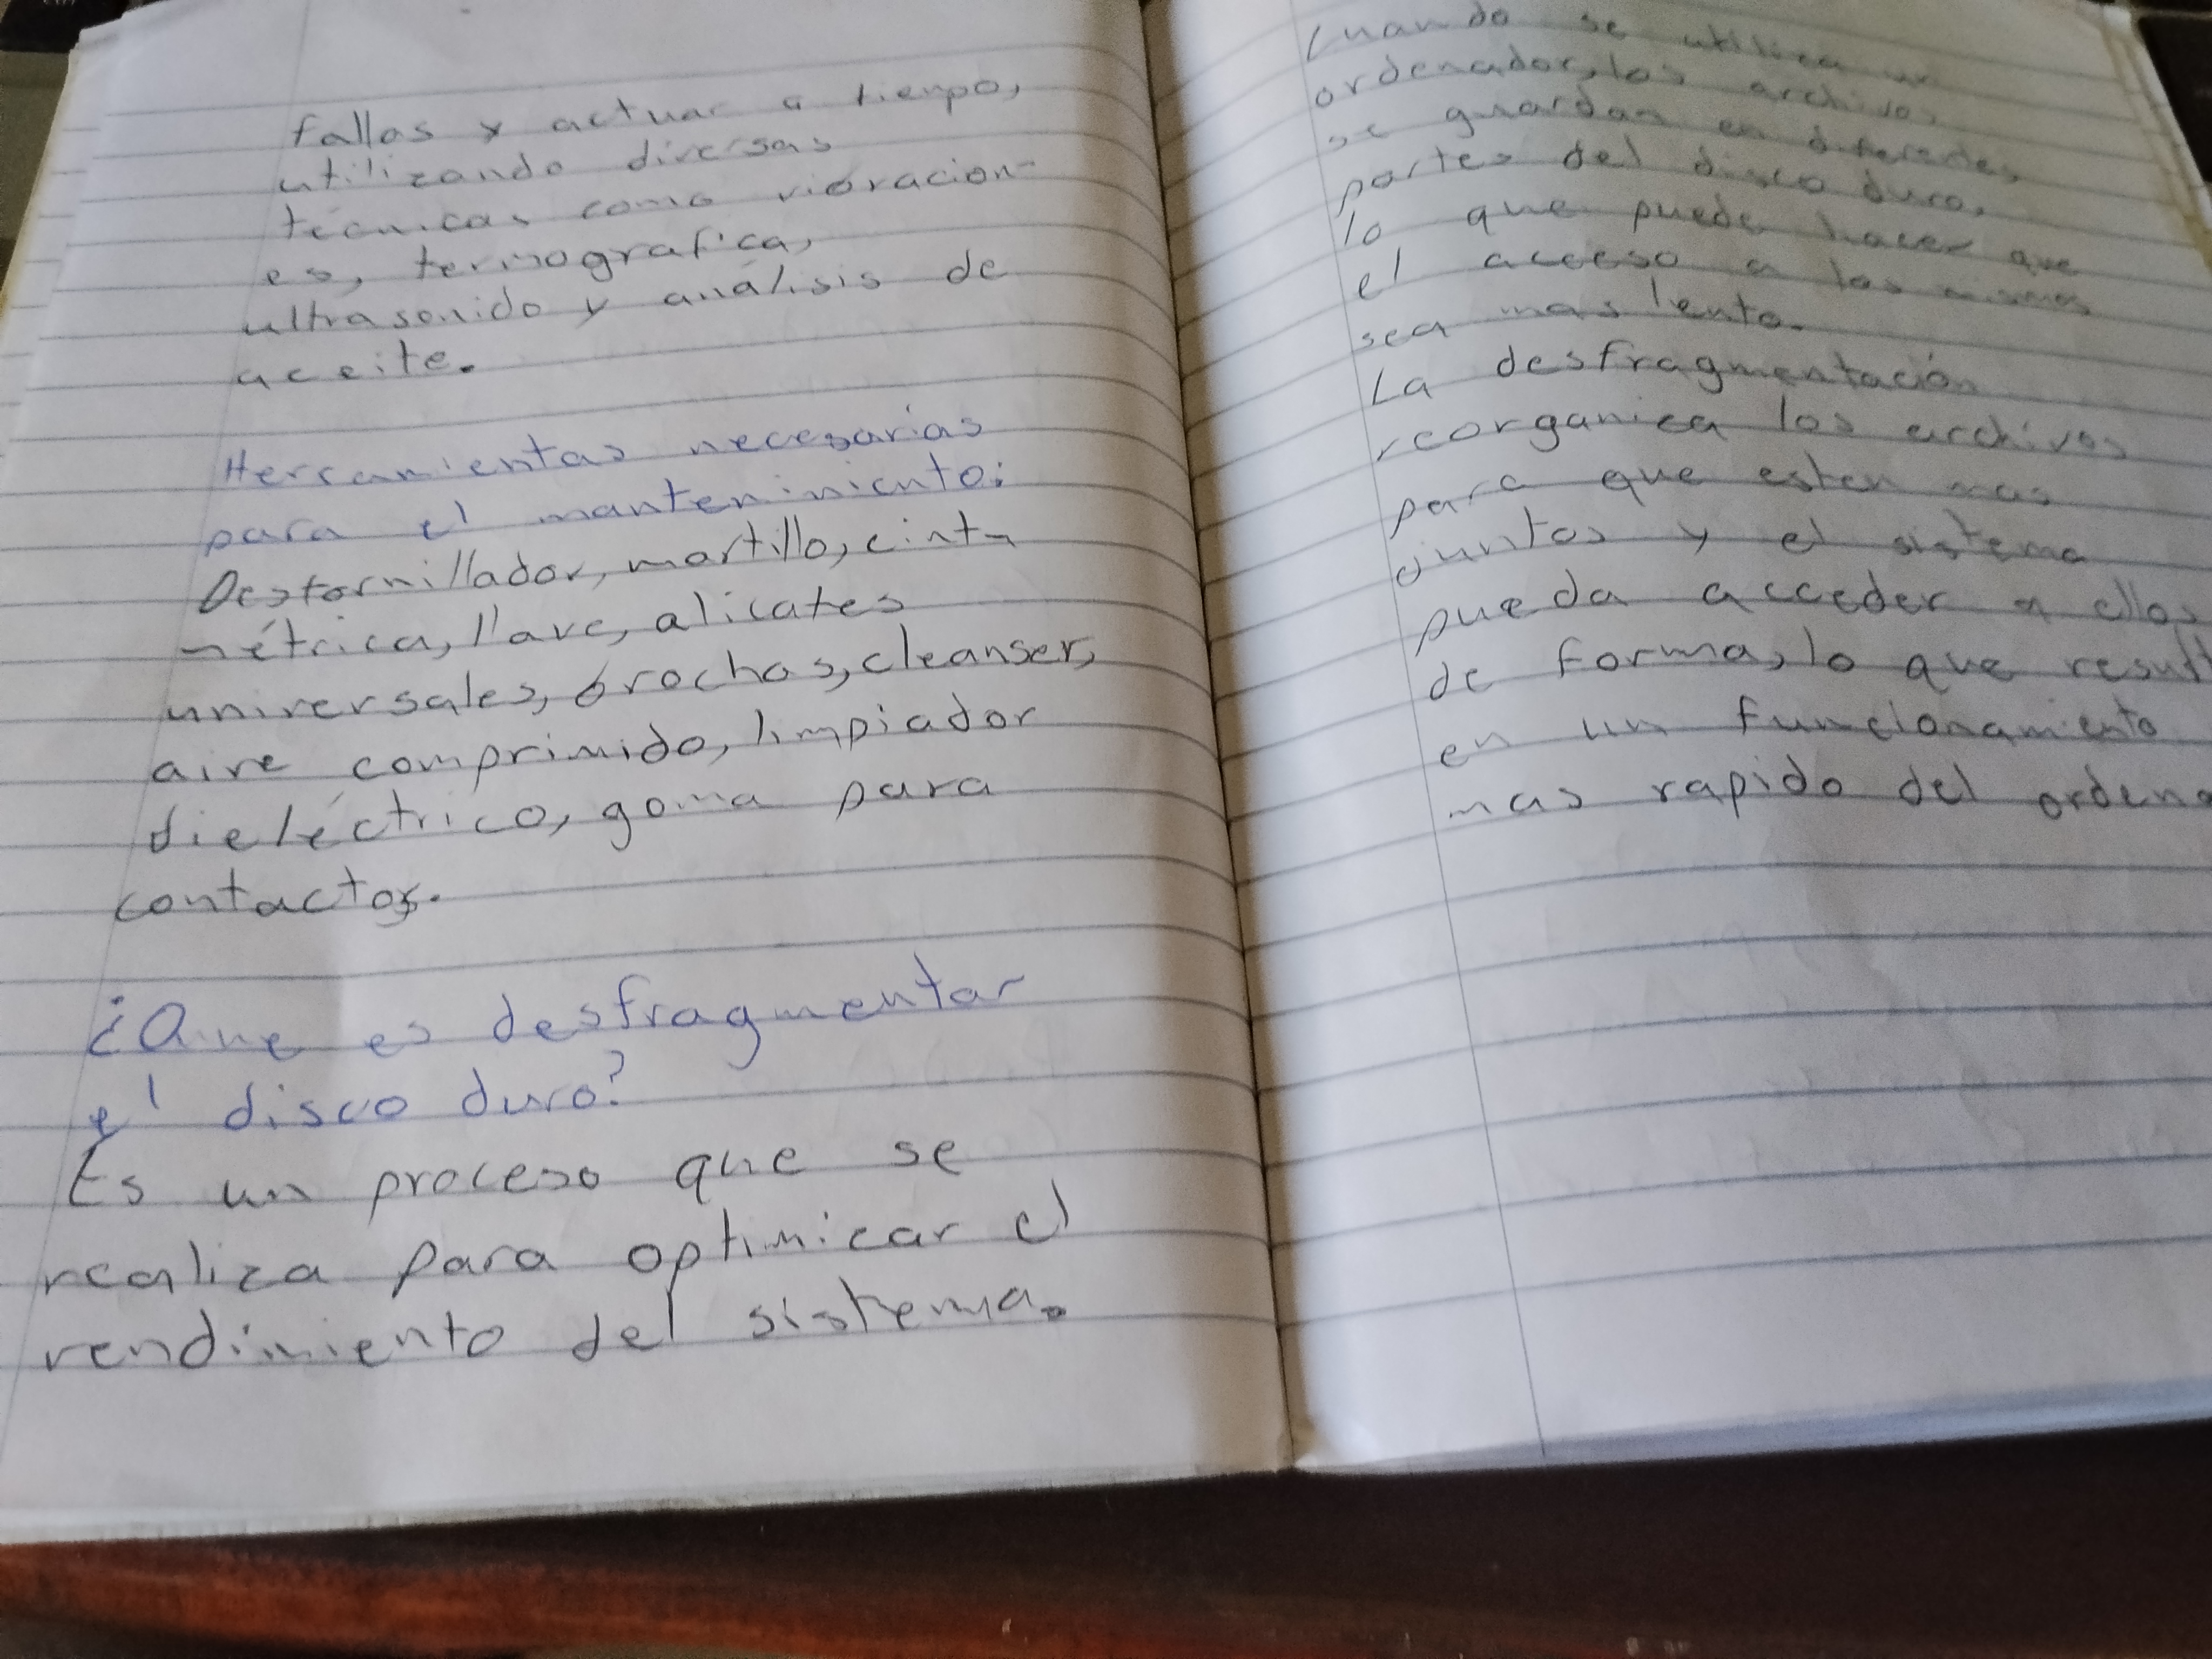 fallas y actuar a tiempo,
utilizando diversas
técnicas como vibracion-
es, termografica,
ultrasonido y análisis de
aceite.
Herramientas necesarias
para el mantenimiento:
Destornillador, martillo, cinta
métrica, llave, alicates
universales, brochas, cleanser,
aire comprimido, limpiador
dieléctrico, goma para
contactos.
¿Que es desfragmentar
el disco duro?
Es un proceso que se
realiza para optimicar el
rendimiento del sistema.
Cuando se utiliza un
ordenador, los archivos
se guardan en diferentes
partes del disco duro,
lo que puede hacer que
el acceso a los mismos
sea mas lento.
La desfragmentación
reorganiza los archivos
para que esten mas
juntos y el sistema
pueda acceder a ellos
de forma, lo que result
en un funcionamiento
mas rapido del ordena